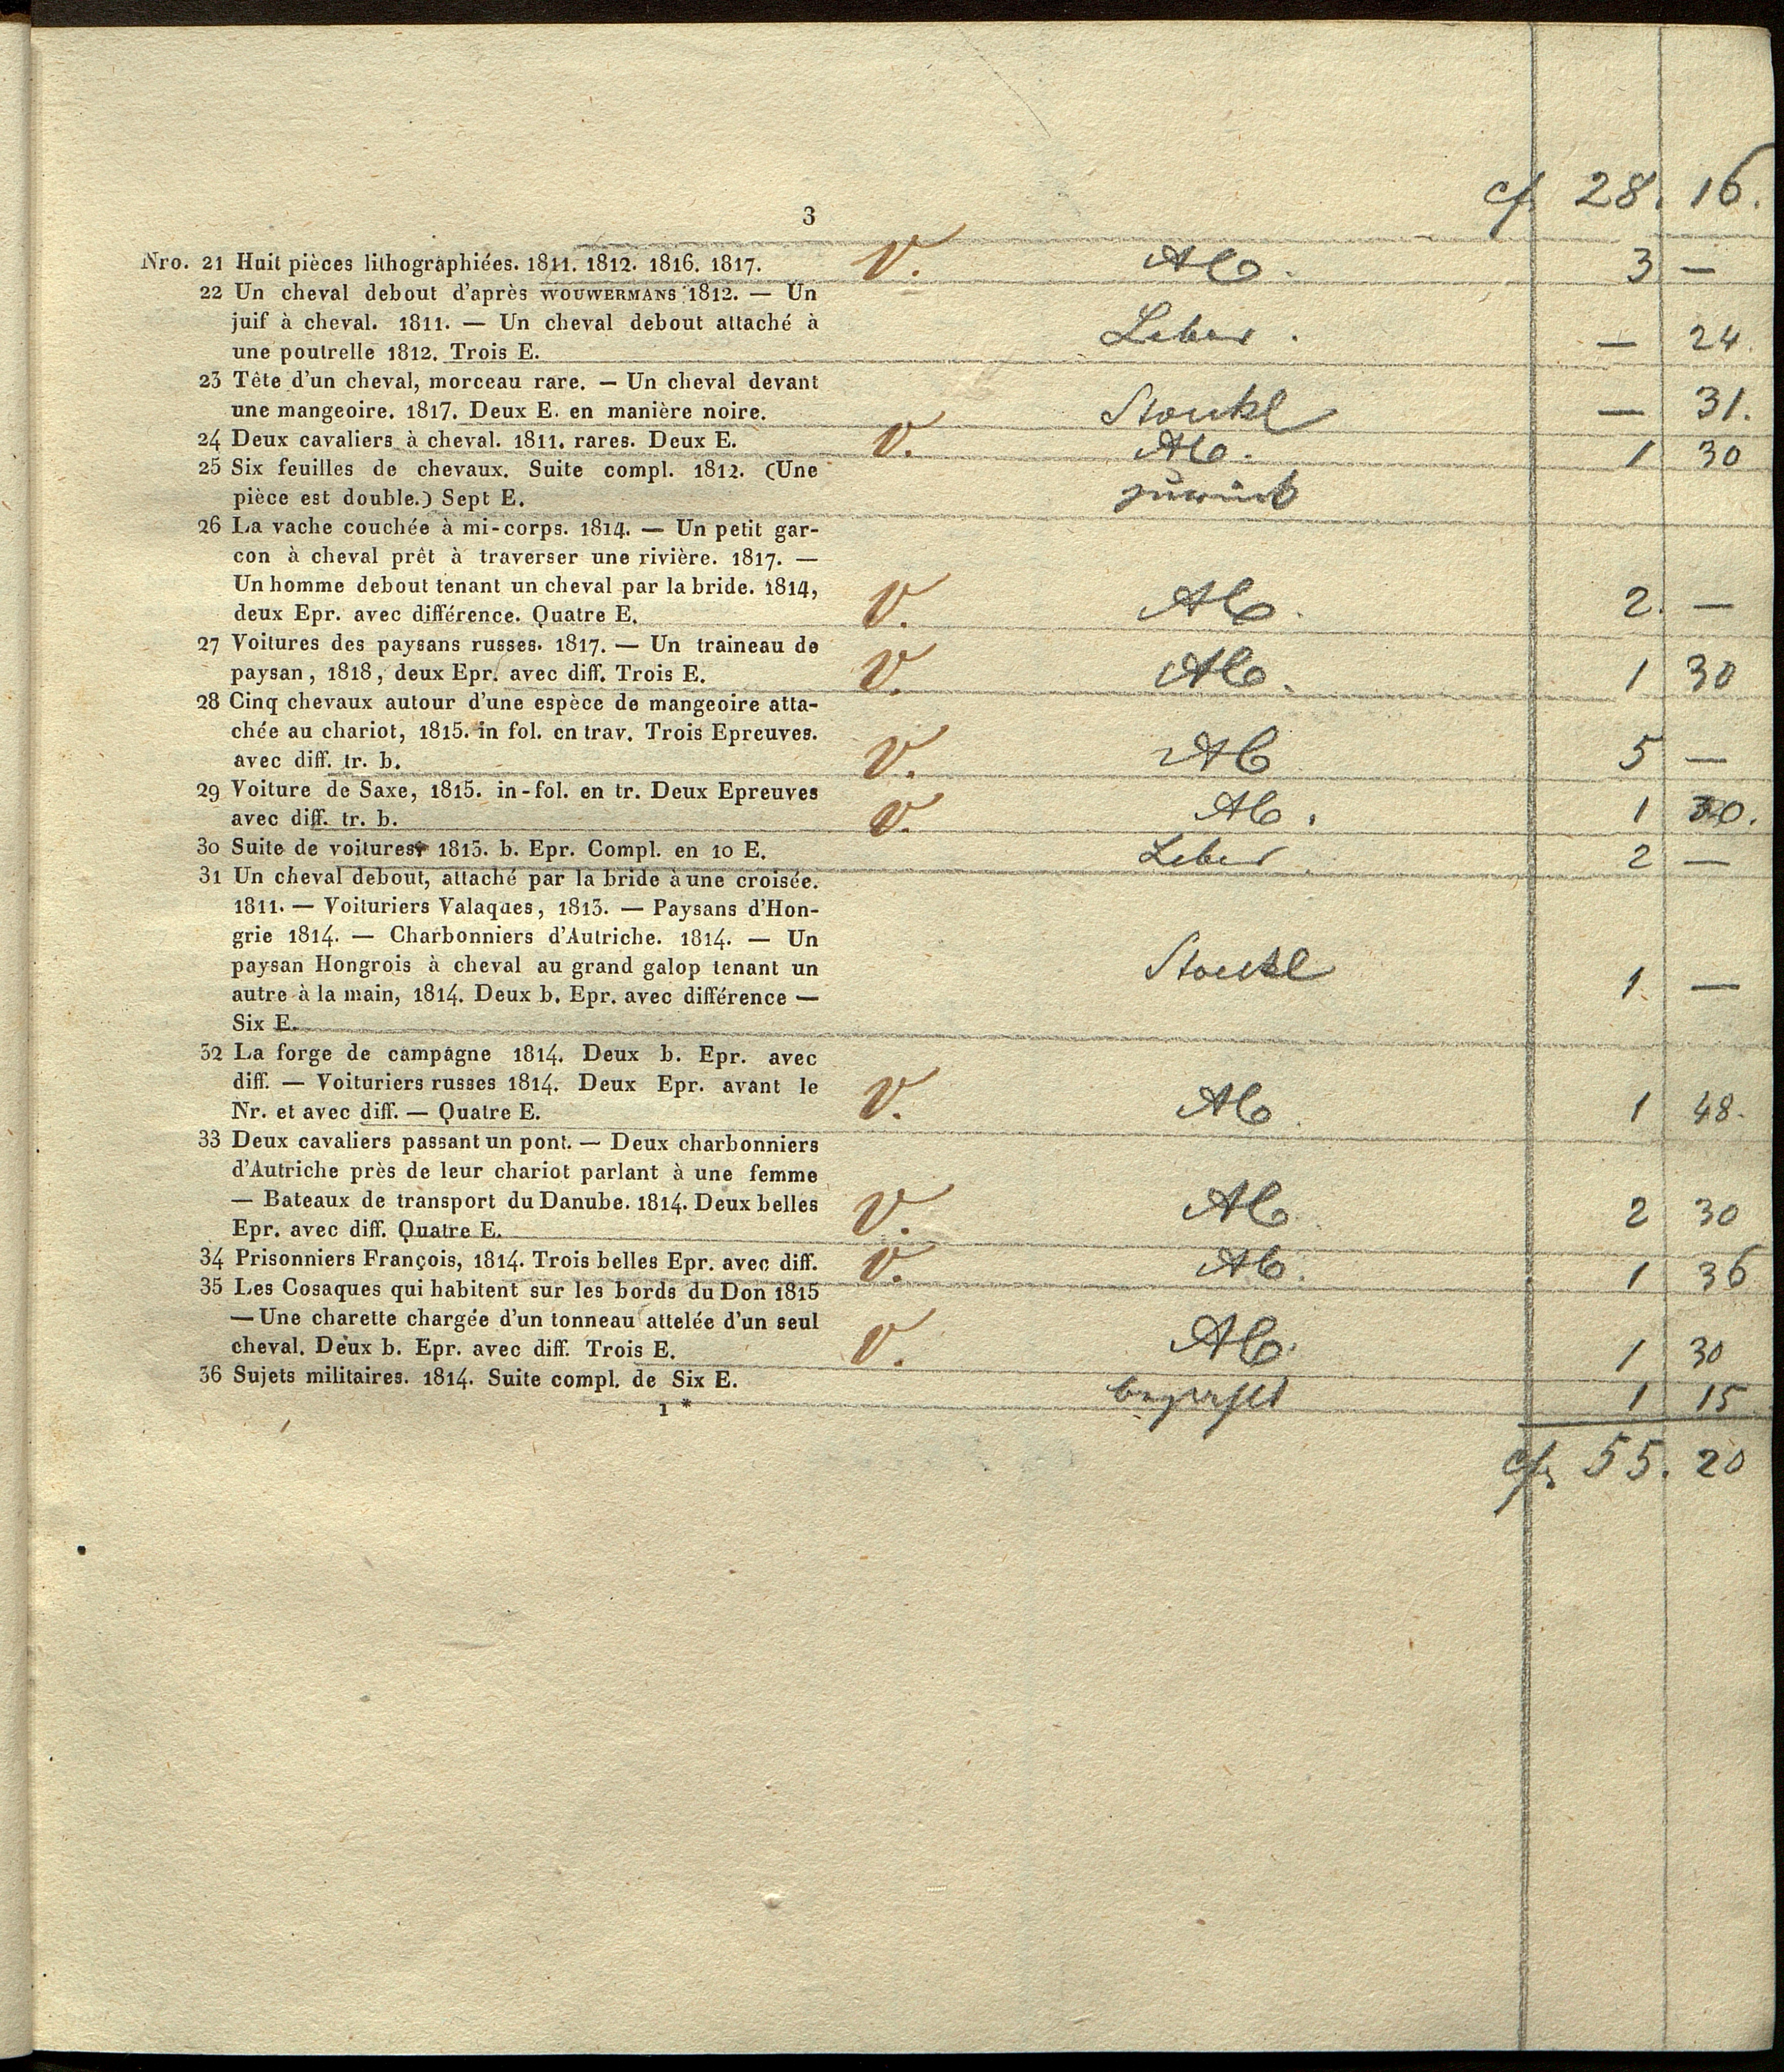 cf. 28. 16.
3
Nro. 21 Huit pièces lithographiées. 1811. 1812. 1816. 1817. V. Ab. 3 —
22 Un cheval debout d'après WOUWERMANS 1812. — Un
juif à cheval. 1811. — Un cheval debout attaché à
une poutrelle 1812. Trois E. — 24.
23 Tête d'un cheval, morceau rare. — Un cheval devant
une mangeoire. 1817. Deux E. en manière noire. Stoekl — 31.
24 Deux cavaliers à cheval. 1811. rares. Deux E. V. Ab. 1 30
25 Six feuilles de chevaux. Suite compl. 1812. (Une
pièce est double.) Sept E. zurück
26 La vache couchée à mi-corps. 1814. — Un petit gar-
con à cheval prêt à traverser une rivière. 1817. —
Un homme debout tenant un cheval par la bride. 1814,
deux Epr. avec différence. Quatre E. V. Ab. 2. —
27 Voitures des paysans russes. 1817. — Un traineau de
paysan, 1818, deux Epr. avec diff. Trois E. V. Ab. 1 30
28 Cinq chevaux autour d'une espèce de mangeoire atta-
chée au chariot, 1815. in fol. en trav. Trois Epreuves.
avec diff. tr. b. V. Ab 5 —
29 Voiture de Saxe, 1815. in-fol. en tr. Deux Epreuves
avec diff. tr. b. V. Ab. 1
30 Suite de voitures 1813. b. Epr. Compl. en 10 E. 2 —
31 Un cheval debout, attaché par la bride à une croisée.
1811. — Voituriers Valaques, 1813. — Paysans d'Hon-
grie 1814. — Charbonniers d'Autriche. 1814. — Un
paysan Hongrois à cheval au grand galop tenant un
autre à la main, 1814. Deux b. Epr. avec différence — Stoekl 1 —
Six E.
32 La forge de campagne 1814. Deux b. Epr. avec
diff. — Voituriers russes 1814. Deux Epr. avant le
Nr. et avec diff. — Quatre E. V. Ab. 1 48.
33 Deux cavaliers passant un pont. — Deux charbonniers
d'Autriche près de leur chariot parlant à une femme
— Bateaux de transport du Danube. 1814. Deux belles
Epr. avec diff. Quatre E. V. Ab. 2 30
34 Prisonniers François, 1814. Trois belles Epr. avec diff. V. Ab. 1 36
35 Les Cosaques qui habitent sur les bords du Don 1815
— Une charette chargée d'un tonneau attelée d'un seul
cheval. Deux b. Epr. avec diff. Trois E. V. Ab. 1 30
36 Sujets militaires. 1814. Suite compl. de Six E. 1 15
1 *
cf. 55. 20